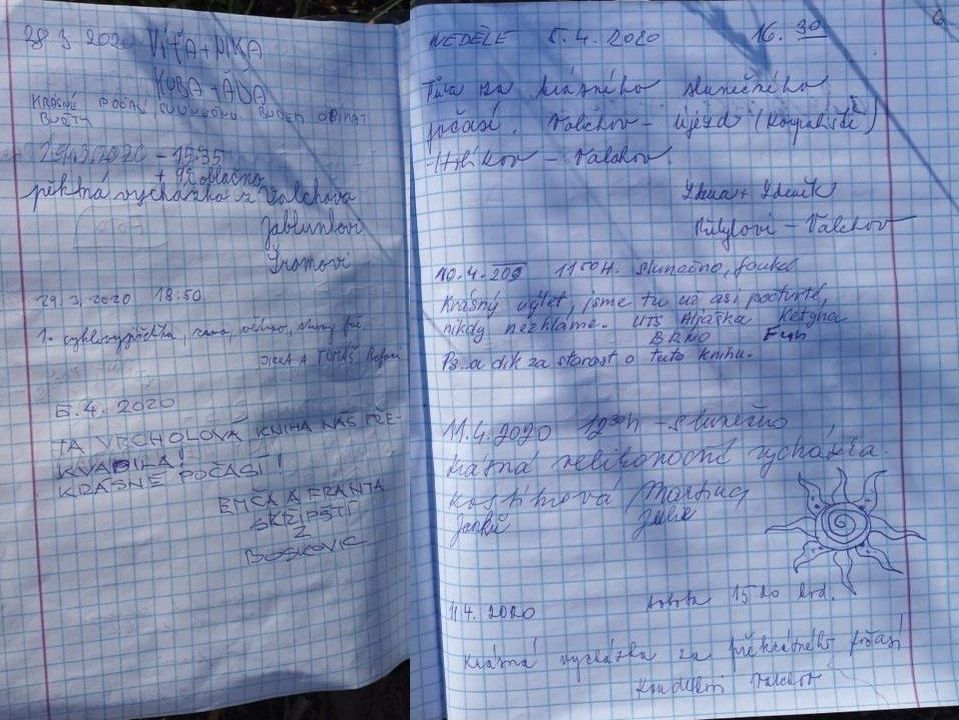 28 3 2020 VÍŤA + NIKA
KUBA + ÁĎA
KRÁSNÉ POČASÍ, BUDEM OBJÍMAT
BUČTY
29/3/2020 - 15:35
+ 9°C oblačno
pěkná vycházka z Valchova
Jabluňkovi
Gromovi
29/3/2020 18:50
1. cyklovyjížďka, zima,
JITKA A TOMÁŠ
5.4. 2020
TA VRCHOLOVÁ KNIHA NÁS PŘE-
KVAPILA!
KRÁSNÉ POČASÍ!
EMČA A FRANTA
SKŘIPSTÍ
Z
BOSKOVIC
6
NEDĚLE 5.4.2020 16.30
Túra za krásného slunečného
počasí. Valchov - Újezd (Koupaliště)
- Hlíkov - Valchov.
Zdena + Zdeněk
- Valchov
10.4.200 1150H. slunečno, fouká
Krásný výlet, jsme tu už asi počtvrté,
nikdy nezklame. Aljaška Ketyna
BRNO Fuh
Ps..a dík za starost o tuto knihu.
11.4.2020 1230h - slunečno
krásná velikonoční vycházka.
Kostihová Martina
Julie
11.4. 2020 sobota 15 20 hod.
krásná vycházka za překrásného počasí
Valchov